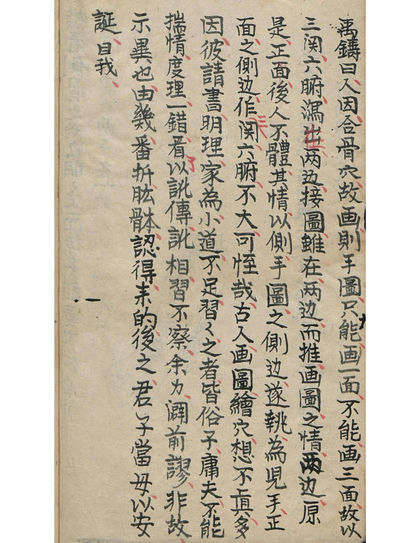 禹鑄曰人因合骨穴故画則手圖只能画一面不能画三面故以
三関六腑瀉出两边接圖雖在两边而推画圖之情两边原
是正面後人不體其情以側手圖之側边遂執為児手正
面之側边作関六腑不大可恠哉古人画圖繪穴想不真多
因彼請書明理家為小道不足習〻之者皆俗子庸夫不能
揣情度理一錯看以訛傳訛相習不察余力闢前謬非故
示異也由幾番折肱骵認得来的後之君子當毋以妄
誕目我
一